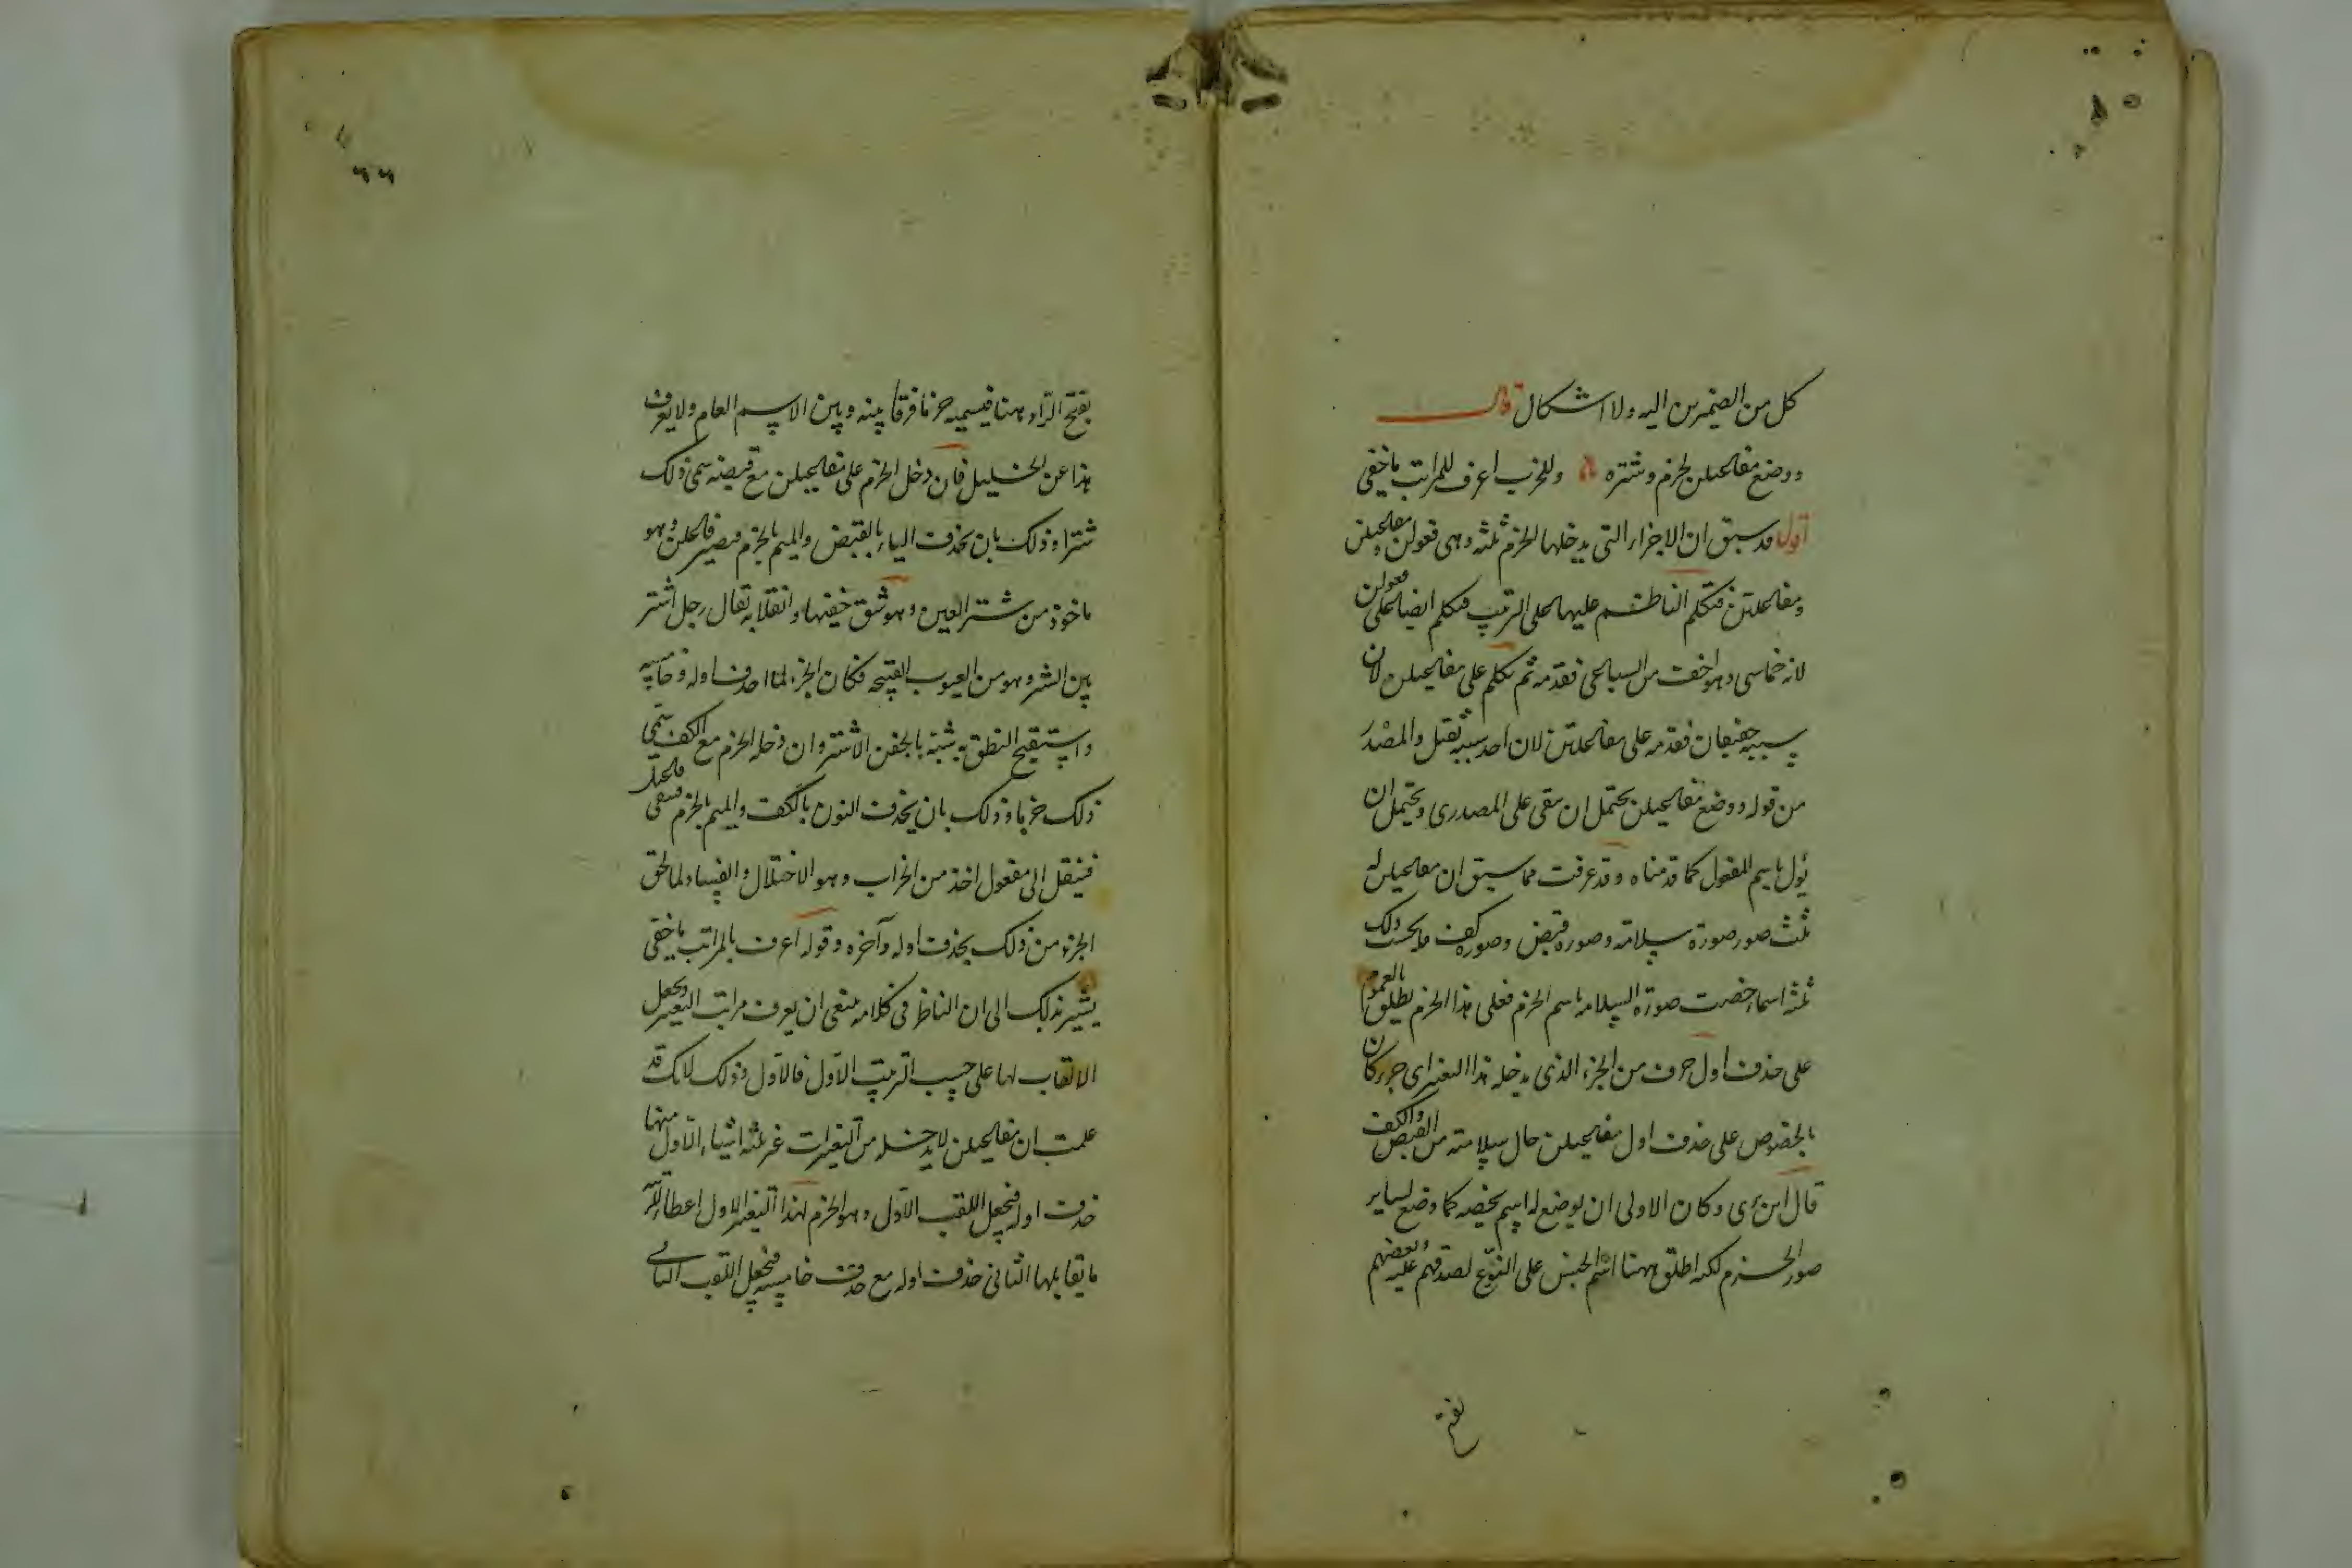 كل من الضميرين اليه ولا اشكال قال
ووضع مفاعيلن لخرم وشتره وللخرب اعرف للمراتب ما خفي
اقول قد سبق ان الاجزاء التي يدخلها الخرم ثلثه وهي فعولن ومفاعيلن
ومفاعلتن فتكلم الناظم عليها على الترتيب فتكلم ايضا على فعولن
لانه خماسى وهو اخف من السباعى فقدمه ثم تكلم على مفاعيلن لان
سببيه خفيفان فقدمه على مفاعلتن لان احد سببيه ثقيل والمصدر
من قوله ووضع مفاعيلن يحتمل ان يبقى على المصدرى ويحتمل ان
يؤل باسم المفعول كما قدمناه وقد عرفت مما سبق ان مفاعيلن له
ثلث صور صورة سلامته وصورة قبض وصورة كف بحسب ذلك
ثلثة اسماء خصت صورة السلامه باسم الخرم فعلى هذا الخرم يطلق بالعموم
على حذف اول حرف من الجزء الذى يدخله هذا التغيير اى جزء كان
بالخصوص على حذف اول مفاعيلن حال سلامته من القبض والكف
قال ابن برى وكان الاولى ان يوضع له اسم يخصه كما وضع لساير
صور الخرم لكنه اطلق ههنا اسم الجنس على النوع لصدقه عليه وبعضهم
يفتح
بفتح الراء ههنا فيسميه خرما فرقا بينه وبين الاسم العام ولا يعرف
هذا عن الخليل فان دخل الخرم على مفاعيلن مع قبضه سمى ذلك
شترا وذلك بان تحذف الياء بالقبض والميم بالخرم فيصير فاعلن وهو
ماخوذ من شتر العين وهو شق جفنها وانقلابه يقال رجل اشتر
بين الشتر وهو من العيوب القبيحه فكان الجزء لما حذف اوله وخامسه
واستقبح النطق به شبه بالجفن الاشتر وان دخله الخرم مع الكف سمى
ذلك خربا وذلك بان يحذف النون بالكف والميم بالخرم فيبقى فاعيل
فينقل الى مفعول اخذ من الخراب وهو الاختلال والفساد لما لحق
الجزء من ذلك بحذف اوله وآخره وقوله اعرف بالمراتب ما خفي
يشير بذلك الى ان الناظر في كلامه ينبغى ان يعرف مراتب التغيير ويجعل
الالقاب لها على حسب الترتيب الاول فالاول وذلك لانك قد
علمت ان مفاعيلن لا يدخله من التغيرات غير ثلثه اشياء الاول منها
حذف اوله فتجعل اللقب الاول وهو الخرم لهذا التغيير الاول اعطاء للمرتبة
ما يقابلها الثاني حذف اوله مع حذف خامسه فتجعل اللقب الثانى